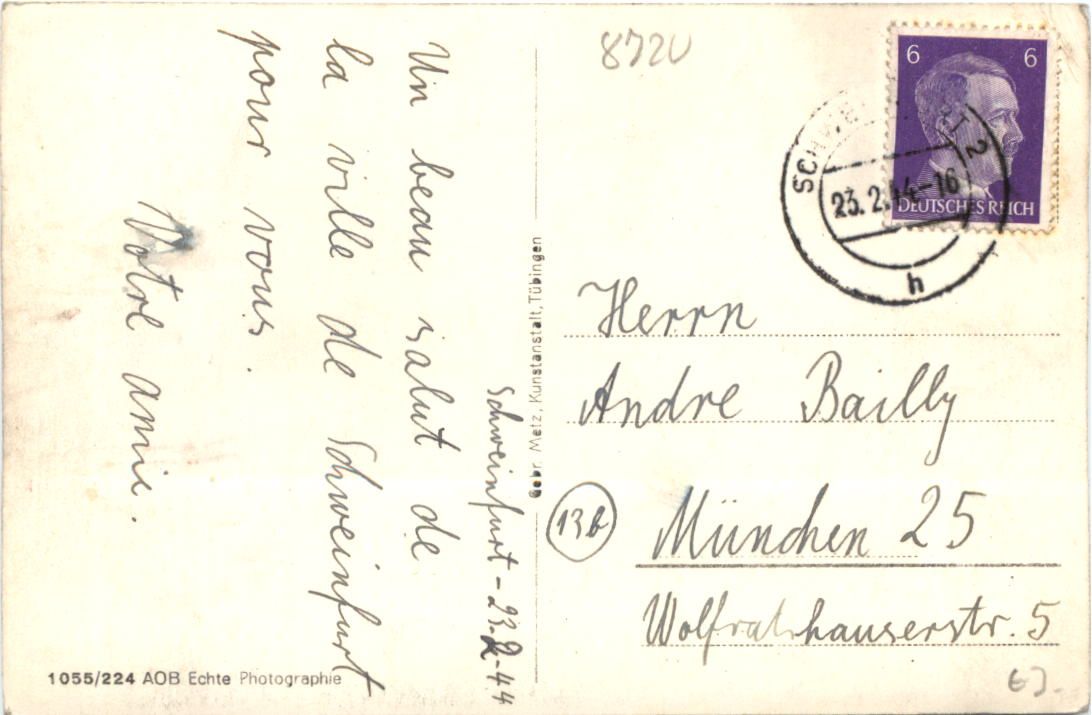 8720
6 6
DEUTSCHES REICH
23.2.44-16
h
Schweinfurt - 23-2-44
Un beau salut de
la ville de Schweinfurt
pour vous.
Votre amie.
Gebr. Metz, Kunstanstalt, Tübingen
Herrn
Andre Bailly
13b
München 25
Wolfratshauserstr. 5
1055/224 AOB Echte Photographie